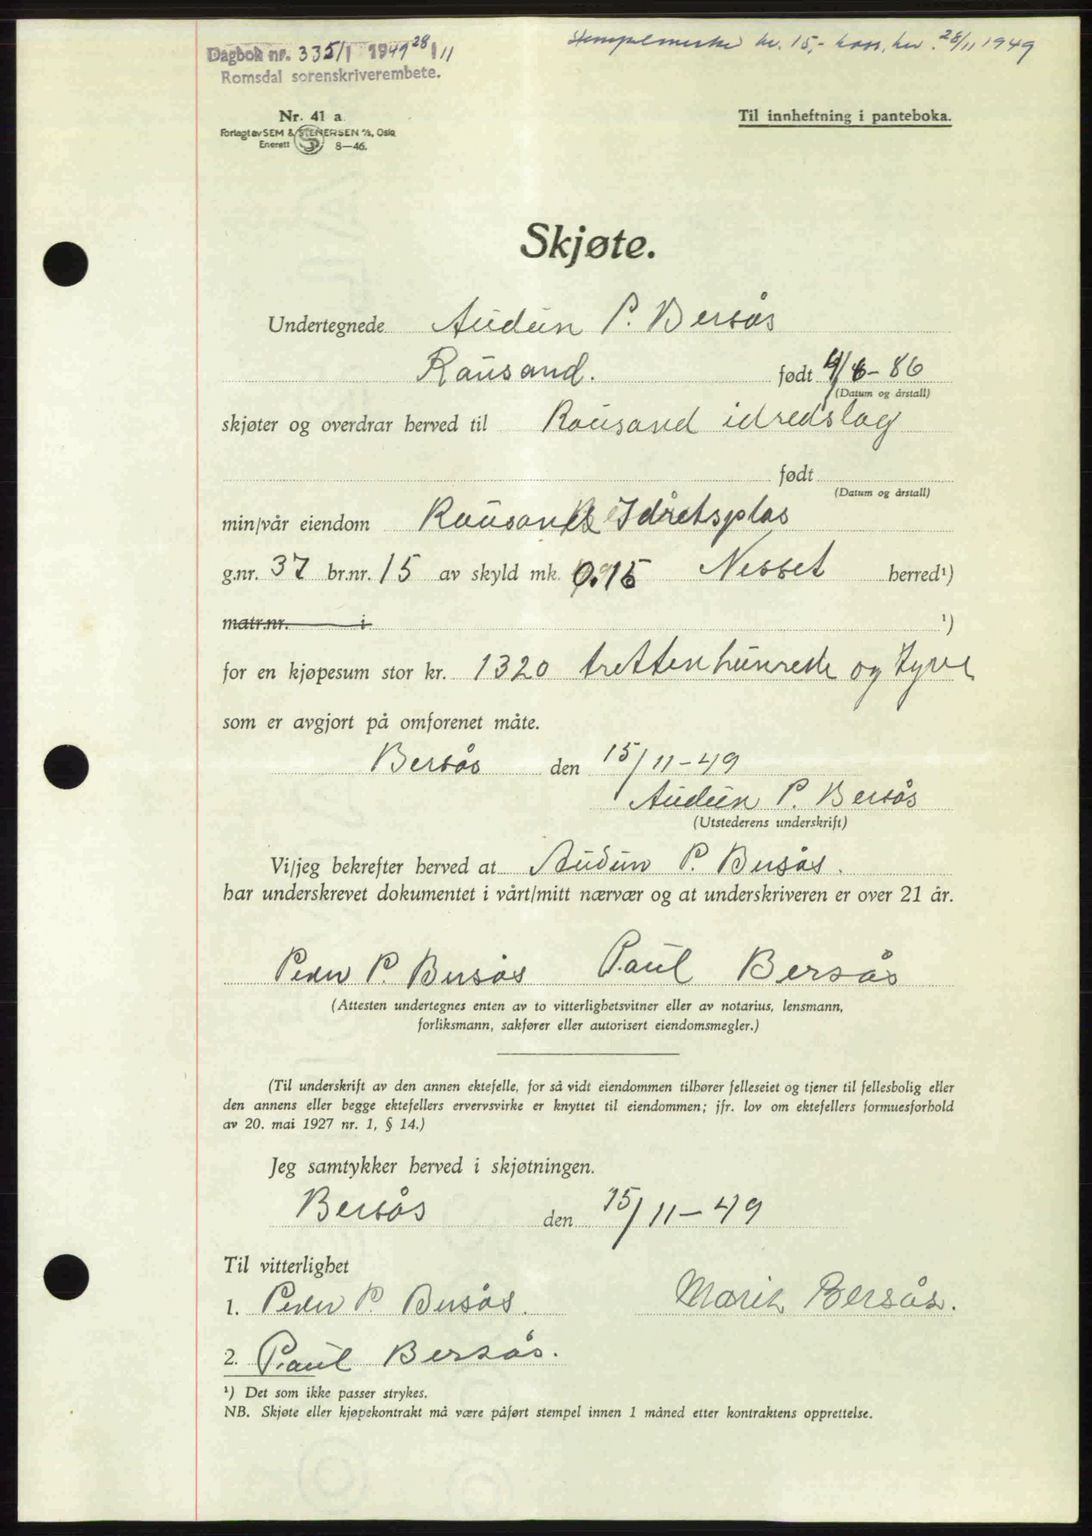 Dagbok nr. 3351 1949 28/11
Stempelmerke kr. 15,- kass. her. 28/11 1949
Romsdal sorenskriverembete.
Nr. 41 a.
Til innheftning i panteboka.
Forlagt av SEM & STENERSEN A/S, Oslo
Enerett 8—46.
Skjøte.
Undertegnede Audun P. Bersås
Rausand. født 4/6-86
(Datum og årstall)
skjøter og overdrar herved til Rausand idredslag
født
(Datum og årstall)
min/vår eiendom Rausand Idretsplas
g.nr. 37 br.nr. 15 av skyld mk. 0.15 Nesset herred¹)
matr.nr. i ¹)
for en kjøpesum stor kr. 1320 trettenhunrede og tyve
som er avgjort på omforenet måte.
Bersås den 15/11-49
Audun P. Bersås
(Utstederens underskrift)
Vi/jeg bekrefter herved at Audun P. Bersås.
har underskrevet dokumentet i vårt/mitt nærvær og at underskriveren er over 21 år.
Peder P. Bersås Paul Bersås
(Attesten undertegnes enten av to vitterlighetsvitner eller av notarius, lensmann,
forliksmann, sakfører eller autorisert eiendomsmegler.)
(Til underskrift av den annen ektefelle, for så vidt eiendommen tilhører felleseiet og tjener til fellesbolig eller
den annens eller begge ektefellers ervervsvirke er knyttet til eiendommen; jfr. lov om ektefellers formuesforhold
av 20. mai 1927 nr. 1, § 14.)
Jeg samtykker herved i skjøtningen.
Bersås den 15/11-49
Til vitterlighet
1. Peder P. Bersås. Marit Bersås.
2. Paul Bersås.
¹) Det som ikke passer strykes.
NB. Skjøte eller kjøpekontrakt må være påført stempel innen 1 måned etter kontraktens opprettelse.